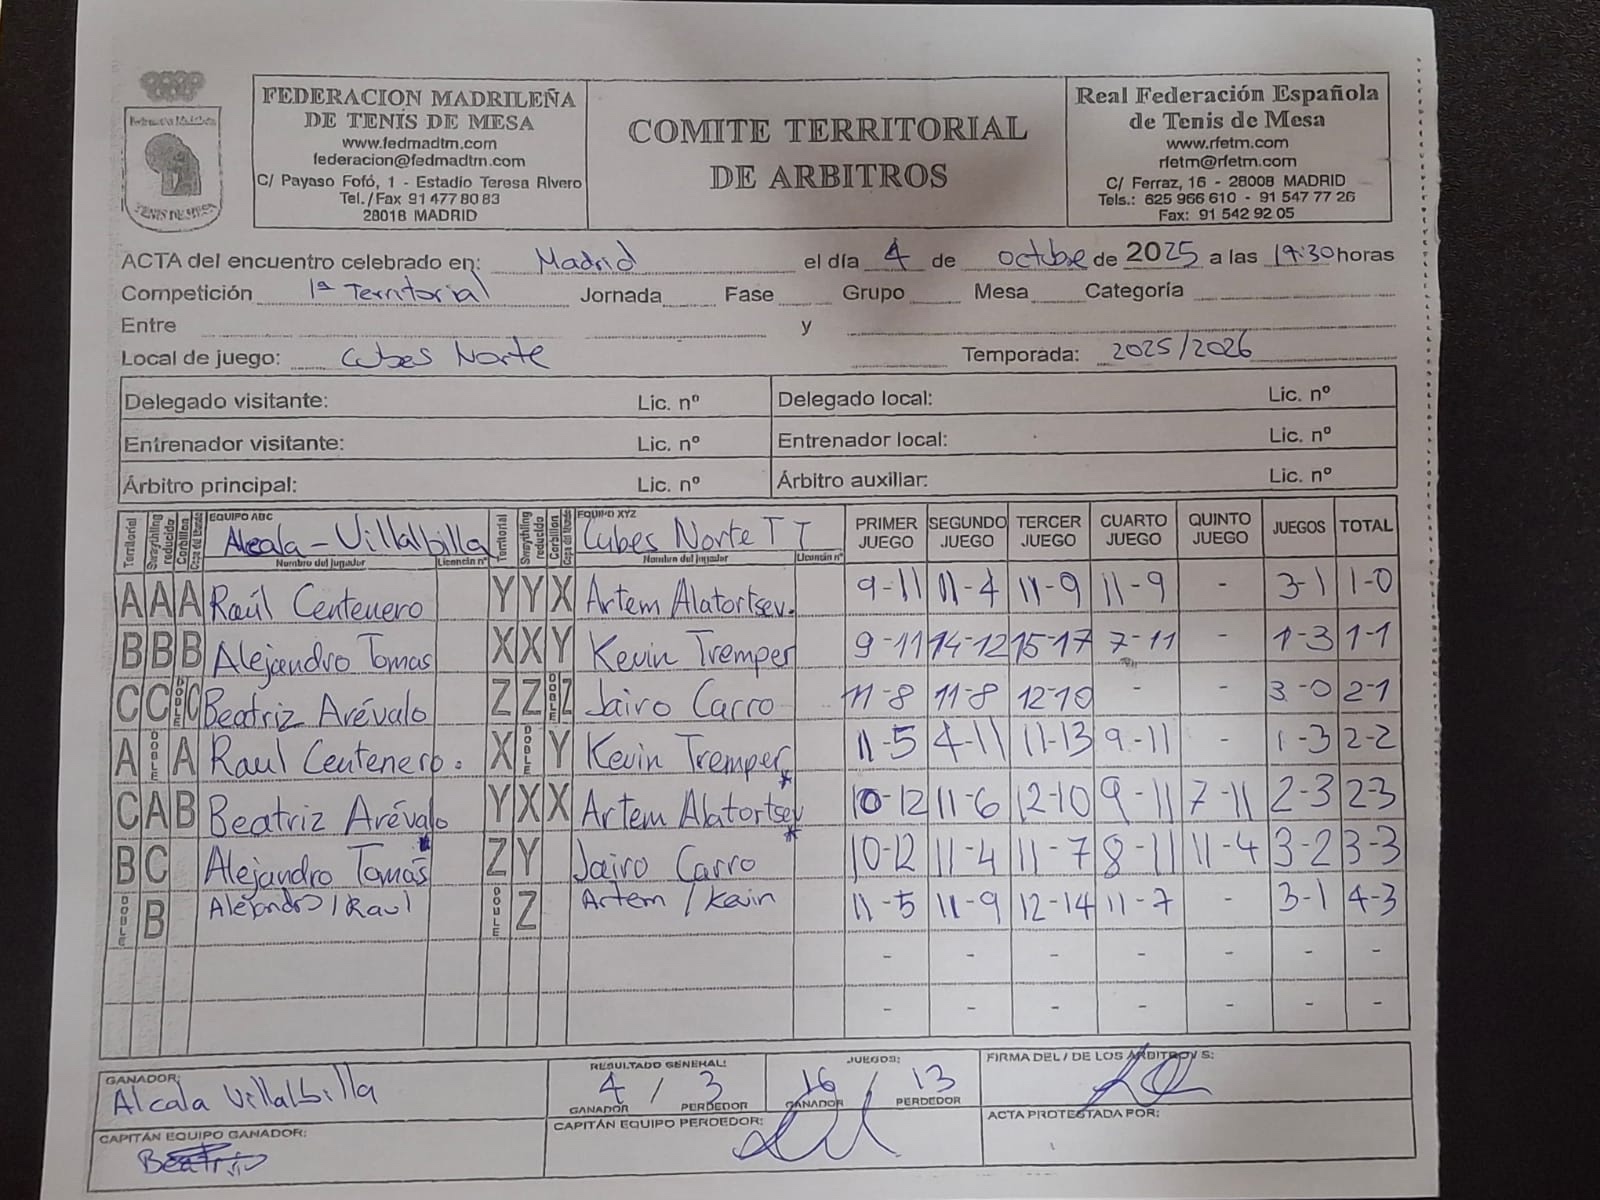 Federación Madrileña
TENIS DE MESA
FEDERACION MADRILEÑA
DE TENIS DE MESA
www.fedmadtm.com
federacion@fedmadtm.com
C/ Payaso Fofó, 1 - Estadio Teresa Rivero
Tel./Fax 91 477 80 83
28018 MADRID
COMITE TERRITORIAL
DE ARBITROS
Real Federación Española
de Tenis de Mesa
www.rfetm.com
rfetm@rfetm.com
C/ Ferraz, 16 - 28008 MADRID
Tels.: 625 966 610 - 91 547 77 26
Fax: 91 542 92 05
ACTA del encuentro celebrado en: Madrid el día 4 de octubre de 2025 a las 19:30 horas
Competición 1ª Territorial Jornada Fase Grupo Mesa Categoría
Entre y
Local de juego: Cubes Norte Temporada: 2025/2026
Delegado visitante: Lic. nº Delegado local: Lic. nº
Entrenador visitante: Lic. nº Entrenador local: Lic. nº
Árbitro principal: Lic. nº Árbitro auxiliar: Lic. nº
Territorial Swaythling reducido Corbillon Copa del Mundo EQUIPO ABC Alcala-Villalbilla Nombre del jugador Licencia nº Territorial Swaythling reducido Corbillon Copa del Mundo EQUIPO XYZ Cubes Norte TT Nombre del jugador Licencia nº PRIMER JUEGO SEGUNDO JUEGO TERCER JUEGO CUARTO JUEGO QUINTO JUEGO JUEGOS TOTAL
A A A Raúl Centenero Y Y X Artem Alatortsev. 9-11 11-4 11-9 11-9 - 3-1 1-0
B B B Alejandro Tomas X X Y Kevin Tremper 9-11 14-12 15-17 7-11 - 1-3 1-1
C C DOBLE C Beatriz Arévalo Z Z DOBLE Z Jairo Carro 11-8 11-8 12-10 - - 3-0 2-1
A DOBLE A Raul Centenero. X DOBLE Y Kevin Tremper 11-5 4-11 11-13 9-11 - 1-3 2-2
C A B Beatriz Arévalo Y X X Artem Alatortsev* 10-12 11-6 12-10 9-11 7-11 2-3 2-3
B C Alejandro Tomás* Z Y Jairo Carro* 10-12 11-4 11-7 8-11 11-4 3-2 3-3
DOBLE B Alejandro/Raul DOUBLE Z Artem/Kevin 11-5 11-9 12-14 11-7 - 3-1 4-3
- - - - - - -
- - - - - - -
GANADOR: Alcala Villalbilla
RESULTADO GENERAL: 4 / 3
GANADOR PERDEDOR
JUEGOS: 16 / 13
GANADOR PERDEDOR
FIRMA DEL / DE LOS ARBITRO/S:
CAPITÁN EQUIPO GANADOR: Beatriz
CAPITÁN EQUIPO PERDEDOR:
ACTA PROTESTADA POR: